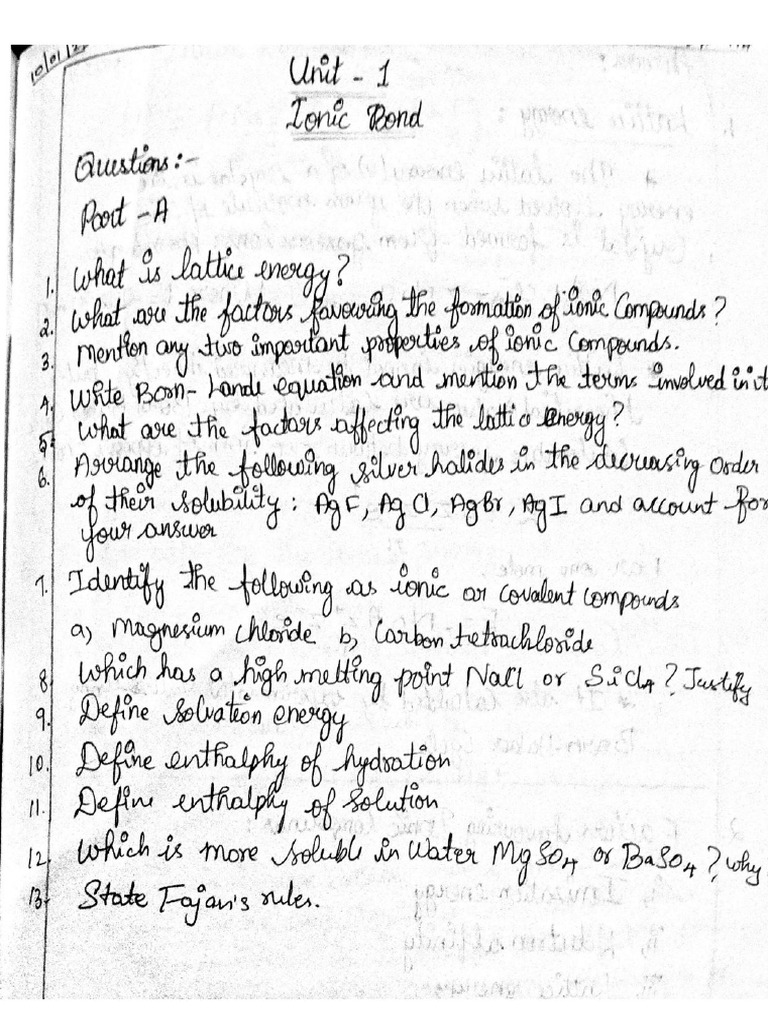 10/01/2
Unit - 1
Ionic Bond
Questions:-
Part - A
1. What is lattice energy?
2. What are the factors favouring the formation of ionic Compounds?
3. Mention any two important properties of ionic Compounds.
4. Write Born-Lande equation and mention the terms involved in it
5. What are the factors affecting the lattice energy?
6. Arrange the following silver halides in the decreasing order
of their solubility: AgF, AgCl, AgBr, AgI and account for
your answer
7. Identify the following as ionic or covalent compounds
a) Magnesium chloride b) Carbon tetrachloride
8. Which has a high melting point NaCl or SiCl4? Justify
9. Define Solvation energy
10. Define enthalphy of hydration
11. Define enthalphy of solution
12. Which is more soluble in Water MgSO4 or BaSO4? why
13. State Fajan's rules.